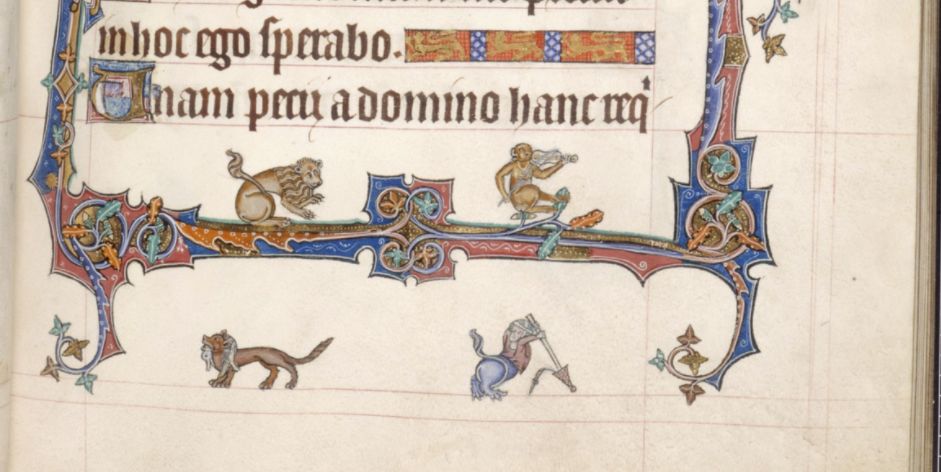 in hoc ego sperabo.
Unam petii a domino hanc reqⁱ